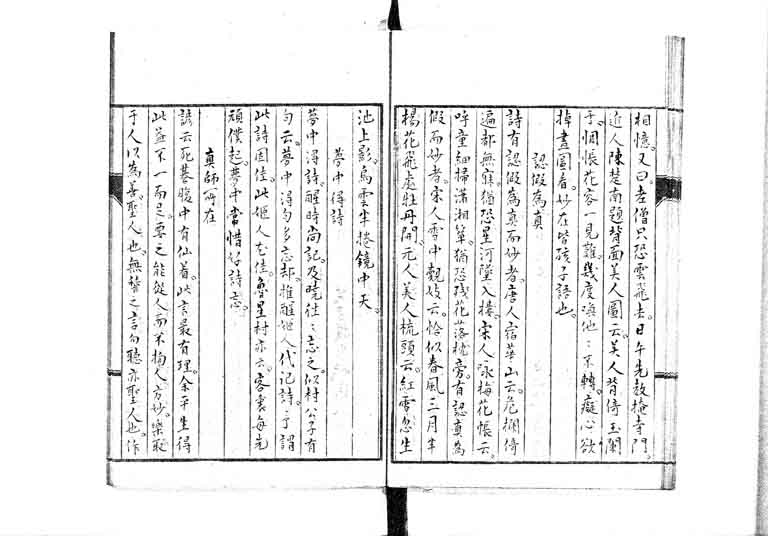 相憶又曰老僧只恐雲飛去日午先教掩寺門
近人陳楚南題背面美人圖云美人背倚玉闌
干惆悵花容一見難幾度喚他他不轉癡心欲
掉畫圖看妙在皆孩子語也
認假為真
詩有認假為真而妙者唐人宿華山云危欄倚
遍都無寐猶恐星河墜入樓宋人咏梅花帳云
呼童細掃瀟湘簟猶恐殘花落枕旁有認真為
假而妙者宋人雪中觀妓云恰似春風三月半
楊花飛處牡丹開元人美人梳頭云紅雪忽生
池上影烏雲半捲鏡中天
夢中得詩
夢中得詩醒時尚記及曉往往忘之似村公子有
句云夢中得句多忘却推醒姬人代記詩予謂
此詩固佳此姬人尤佳魯星村亦云客裏每先
頑僕起夢中常惜好詩忘
真師所在
諺云死棊腹中有仙着此言最有理余平生得
此益不一而足要之能從人而不拘人方妙樂取
于人以為善聖人也無稽之言勿聽亦聖人也作